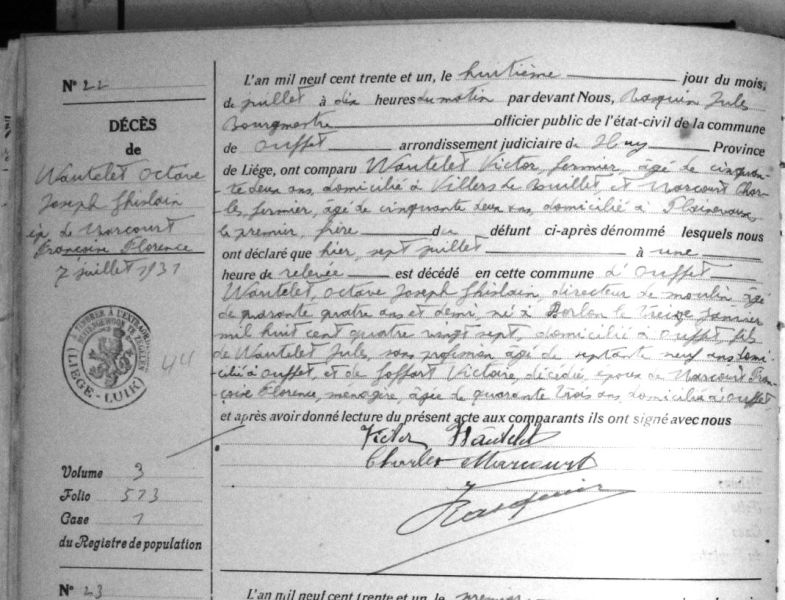 N° 22
DÉCÈS
de
Wautelet Octave
Joseph Ghislain
ép. de Marcourt
Françoise Florence
7 juillet 1931
TIMBRER À L'EXTRAORDINAIRE
(LIÈGE - LUIK)
44
Volume 3
Folio 573
Case 1
du Registre de population
N° 23
L'an mil neuf cent trente et un, le huitième jour du mois,
de juillet à dix heures du matin par devant Nous, Rasquin Jules
Bourgmestre officier public de l'état-civil de la commune
de Ouffet arrondissement judiciaire de Huy Province
de Liége, ont comparu Wautelet Victor, fermier, âgé de cinquan-
te deux ans, domicilié à Villers le Bouillet et Marcourt Char-
les, fermier, âgé de cinquante deux ans, domicilié à Plainevaux,
le premier, frère du défunt ci-après dénommé lesquels nous
ont déclaré que hier, sept juillet à une
heure de relevée est décédé en cette commune d'Ouffet
Wautelet, Octave Joseph Ghislain, directeur de moulin, âgé
de quarante quatre ans et demi, né à Borlon le treize janvier
mil huit cent quatre vingt sept, domicilié à Ouffet, fils
de Wautelet Jules, sans profession, âgé de septante neuf ans, domi-
cilié à Ouffet, et de Joffart Victoire, décédée, époux de Marcourt Fran-
çoise Florence, ménagère, âgée de quarante trois ans, domiciliée à Ouffet
et après avoir donné lecture du présent acte aux comparants ils ont signé avec nous
Victor Wautelet
Charles Marcourt
Rasquin
L'an mil neuf cent trente et un, le premier